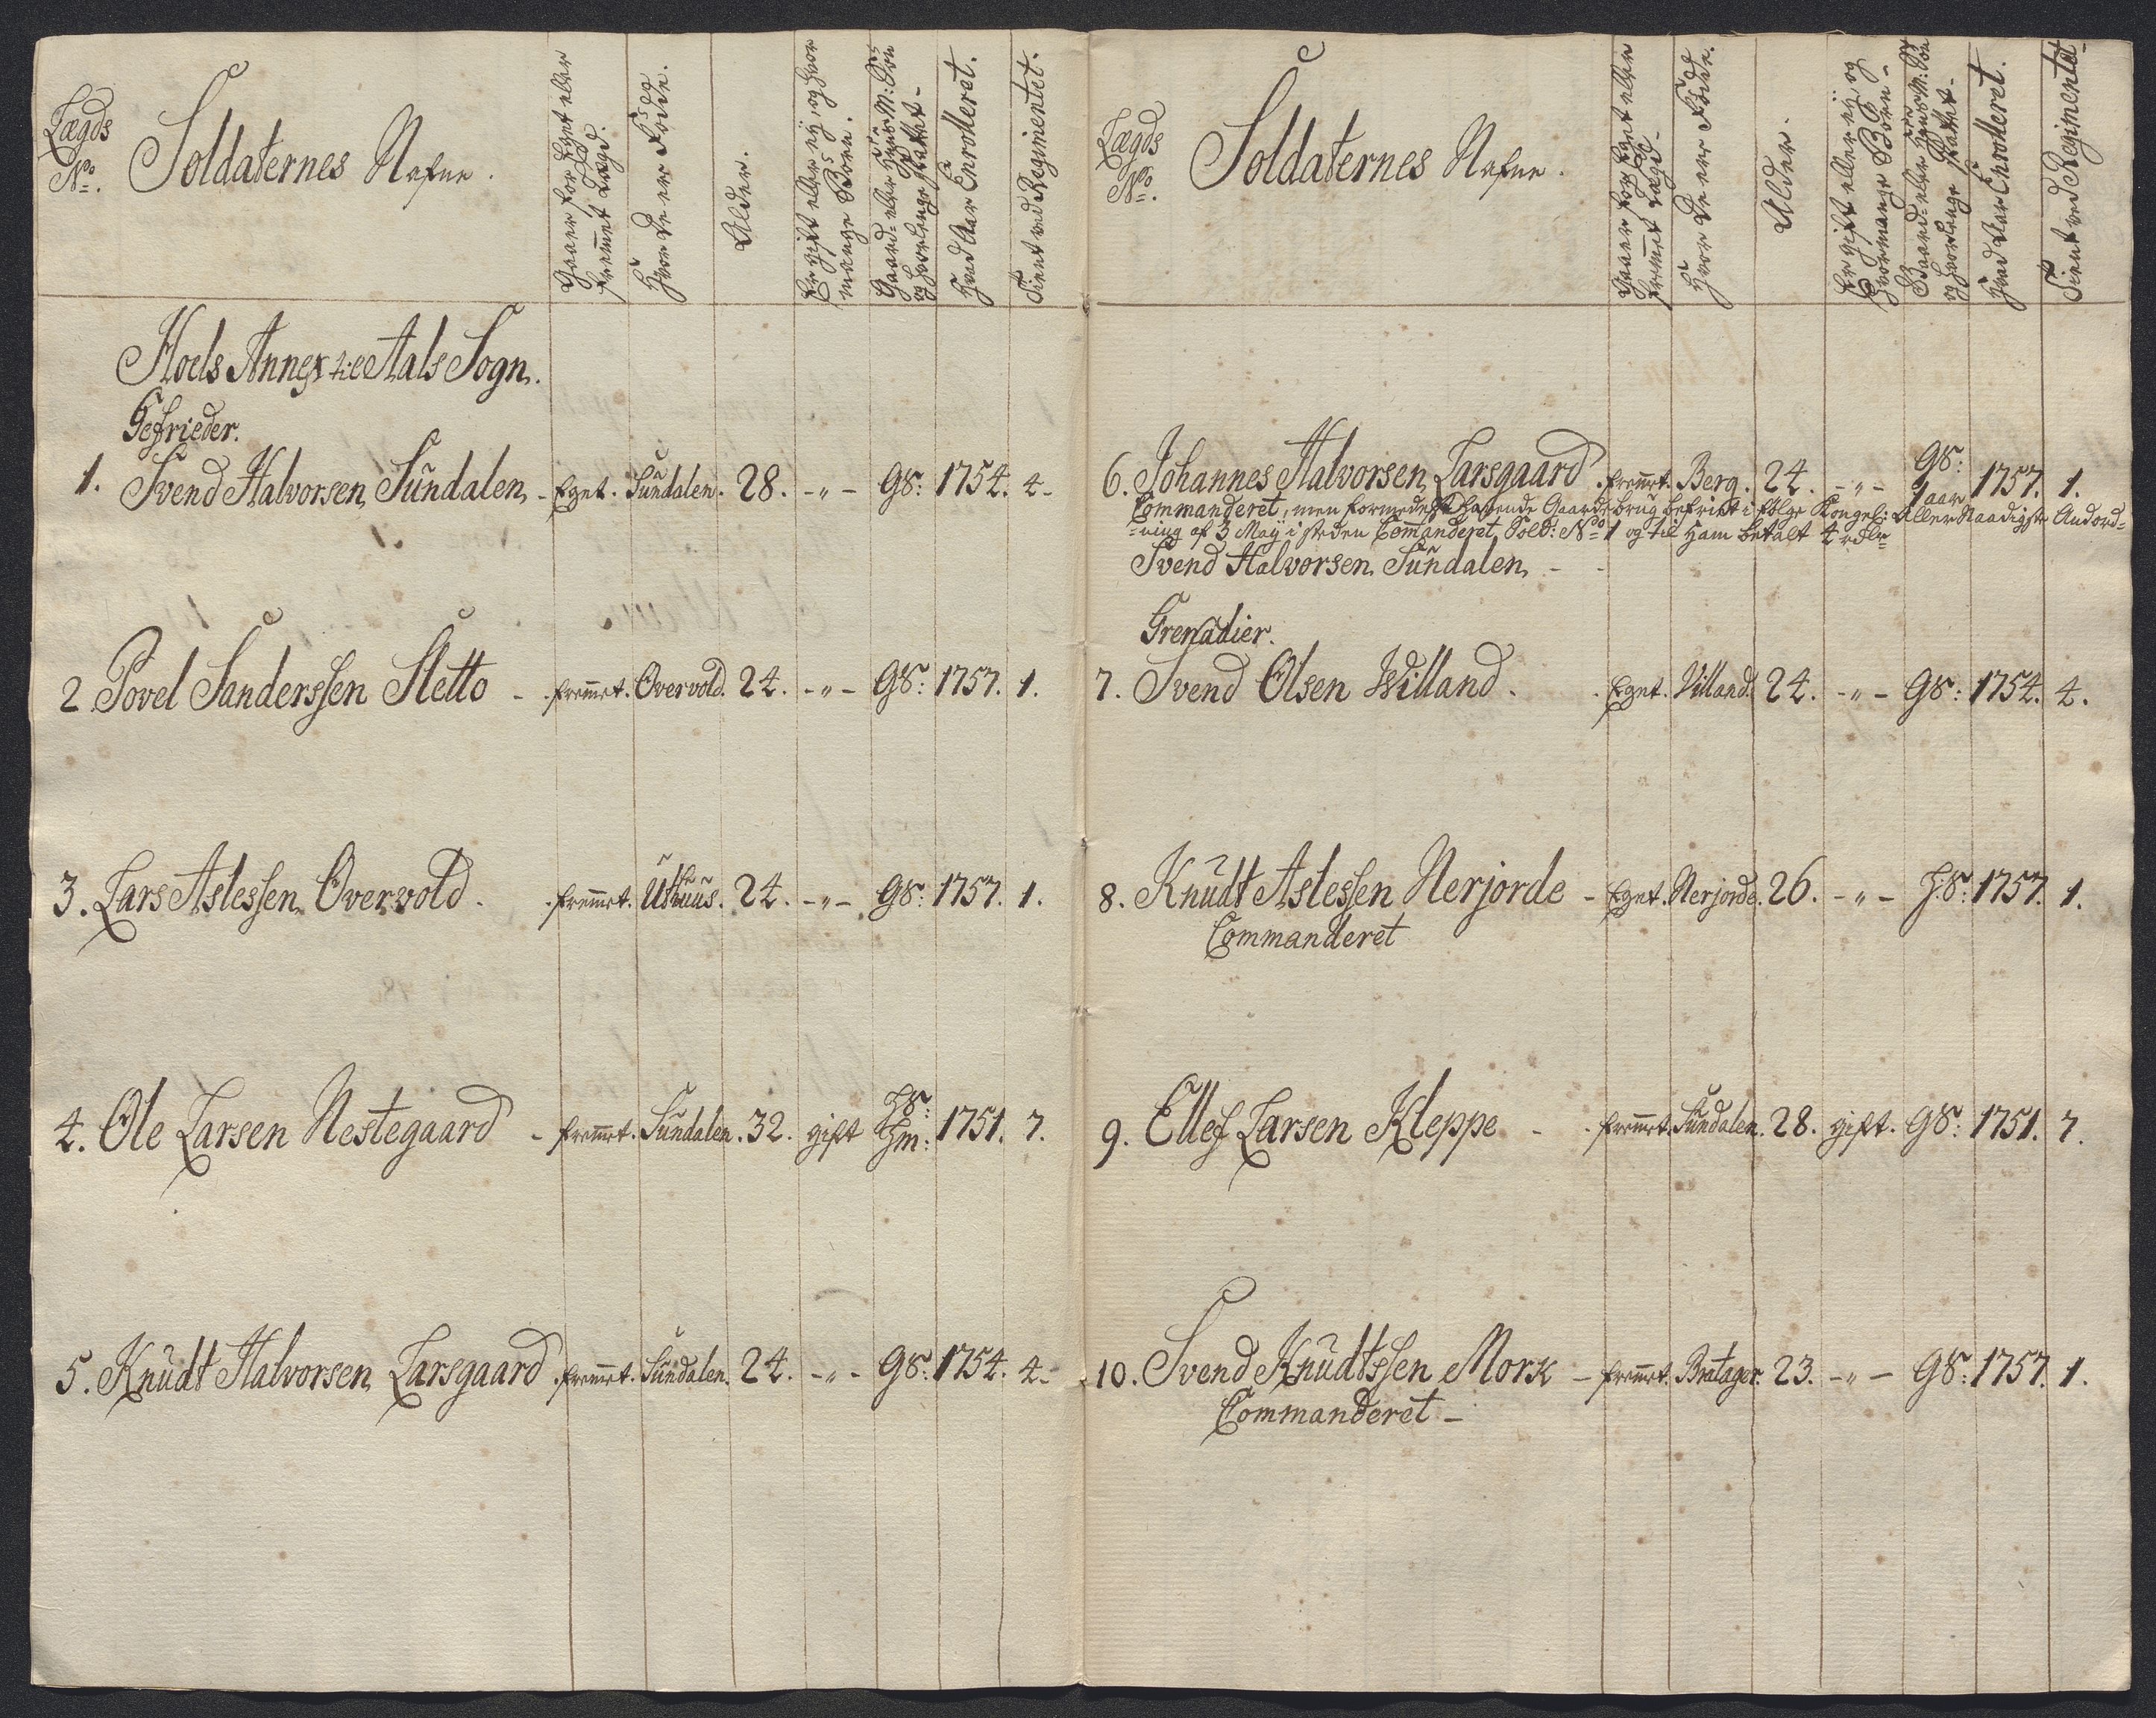 Lægds
No.
Soldaternes Nafne.
Gaaer for Eget eller
fremmet Lægd.
Hvor De ere Fødde.
Alder.
Er gift eller eÿ, og hvor
mange Børn.
Gaard- eller Huus M: Søn
og hvorlenge Sattet-
Hvad Aar Enrolleret.
Tient ved Regimentet.
Hoels Annex til Aals Sogn.
Gefrieder.
1. Svend Halvorsen Sundalen - Eget. Sundalen. 28. -"- GS: 1754. 4-
2 Povel Sanderssen Sletto - fremmet. Overvold. 24. -"- GS: 1757. 1.
3. Lars Aslessen Overvold. fremmet. Uthuus. 24. -"- GS: 1757. 1.
4. Ole Larsen Nestegaard - fremmet. Sundalen. 32. gift HS: Hm: 1751. 7.
5. Knudt Halvorsen Larsgaard. fremmet. Sundalen. 24. -"- GS: 1754. 4-
Lægds
No.
Soldaternes Nafne.
Gaaer for Eget eller
fremmet Lægd-
Hvor De ere Fødde.
Alder.
Er gift eller eÿ, og
Hvormange Børn-
Gaard- eller Huus M: Søn
og hvorlenge Sattet-
Hvad Aar Enrolleret.
Tient ved Regimentet-
6. Johannes Halvorsen Larsgaard. fremmet. Berg. 24. -"- GS: 1 aar 1757. 1.
Commanderet, men formedelst havende Gaardebrug befriet i følge Kongel: Allernaadigste Anord=
=ning af 3 Maÿ i steden Commanderet Sold: No 1 og til ham betalt 4 rdlr
Svend Halvorsen Sundalen - -
Grenadier.
7. Svend Olsen Willand. Eget. Villand. 24. -"- GS: 1754. 4.
8. Knudt Aslessen Nerjorde - Eget. Nerjorde. 26. -"- HS: 1757. 1.
Commanderet
9. Ellef Larsen Kleppe - fremmet. Sundalen. 28. gift. GS: 1751. 7.
10. Svend Knudtssen Mork - fremmet. Bratager. 23. -"- GS: 1757. 1.
Commanderet -